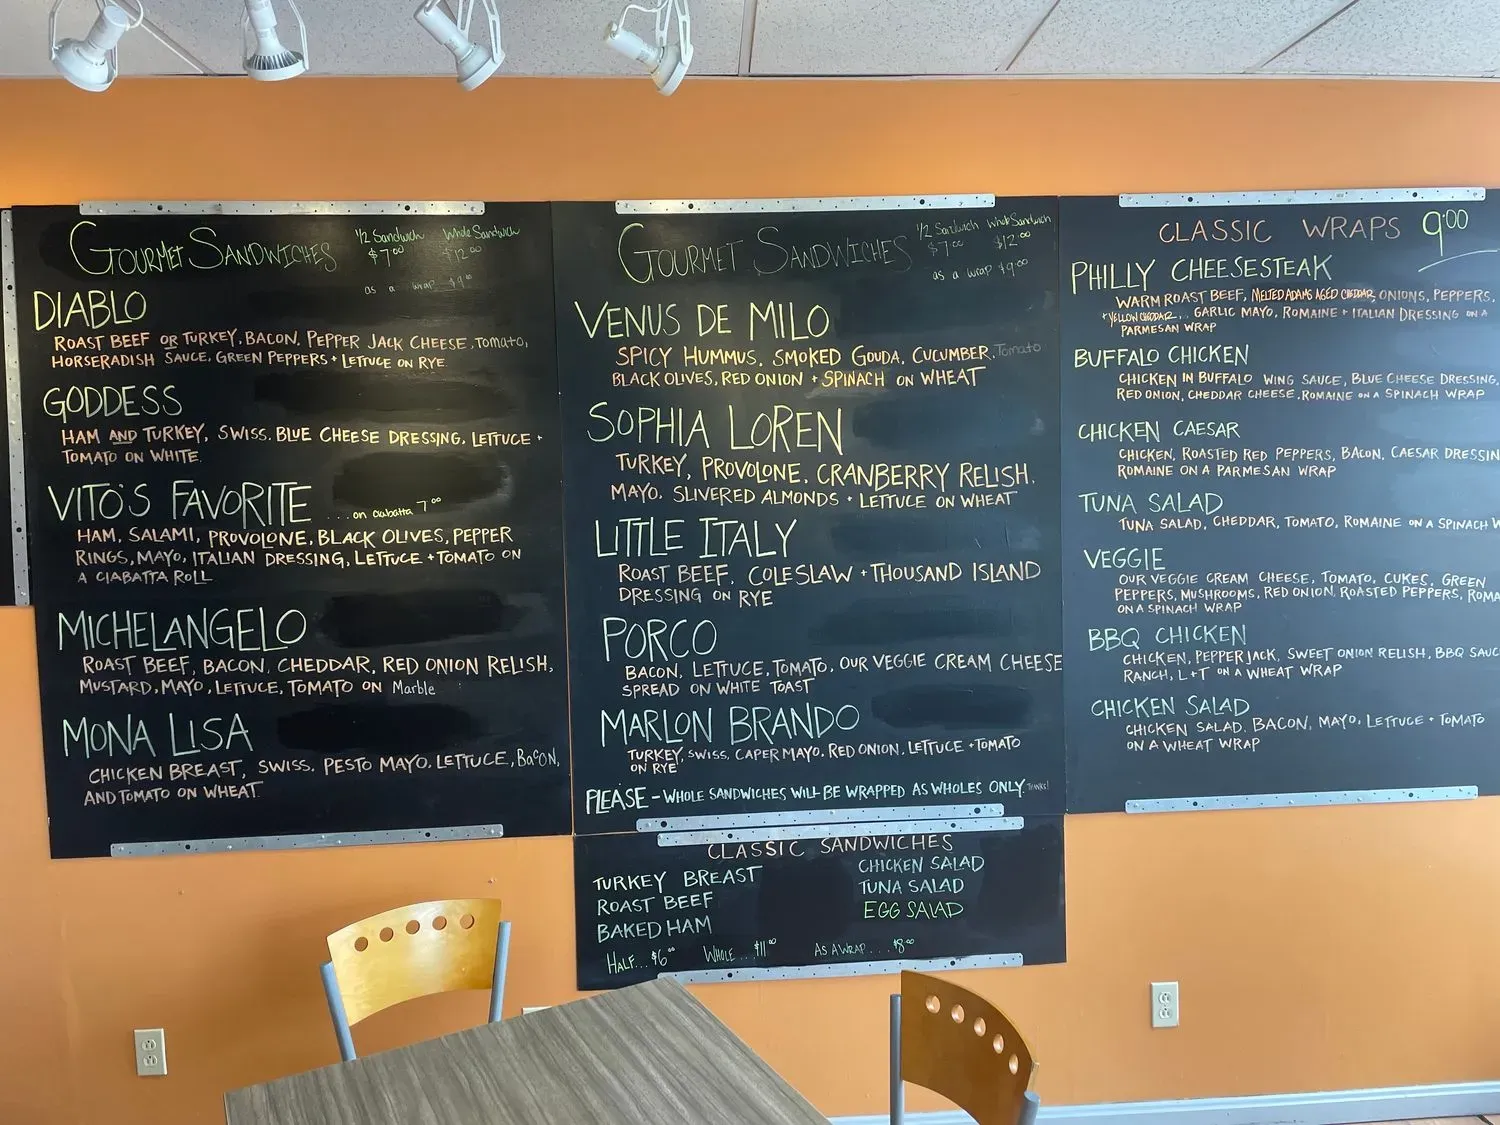 GOURMET SANDWICHES
1/2 Sandwich Whole Sandwich
$7.00 $12.00
as a wrap $9.00
DIABLO
ROAST BEEF OR TURKEY, BACON, PEPPER JACK CHEESE, TOMATO,
HORSERADISH SAUCE, GREEN PEPPERS + LETTUCE ON RYE.
GODDESS
HAM AND TURKEY, SWISS, BLUE CHEESE DRESSING, LETTUCE +
TOMATO ON WHITE.
VITO'S FAVORITE ...on ciabatta 7.00
HAM, SALAMI, PROVOLONE, BLACK OLIVES, PEPPER
RINGS, MAYO, ITALIAN DRESSING, LETTUCE + TOMATO ON
A CIABATTA ROLL
MICHELANGELO
ROAST BEEF, BACON, CHEDDAR, RED ONION RELISH,
MUSTARD, MAYO, LETTUCE, TOMATO ON Marble
MONA LISA
CHICKEN BREAST, SWISS, PESTO MAYO, LETTUCE, BaCON,
AND TOMATO ON WHEAT.
GOURMET SANDWICHES
1/2 Sandwich Whole Sandwich
$7.00 $12.00
as a wrap $9.00
VENUS DE MILO
SPICY HUMMUS, SMOKED GOUDA, CUCUMBER, Tomato
BLACK OLIVES, RED ONION + SPINACH ON WHEAT
SOPHIA LOREN
TURKEY, PROVOLONE, CRANBERRY RELISH,
MAYO, SLIVERED ALMONDS + LETTUCE ON WHEAT
LITTLE ITALY
ROAST BEEF, COLESLAW + THOUSAND ISLAND
DRESSING ON RYE
PORCO
BACON, LETTUCE, TOMATO, OUR VEGGIE CREAM CHEESE
SPREAD ON WHITE TOAST
MARLON BRANDO
TURKEY, SWISS, CAPER MAYO, RED ONION, LETTUCE + TOMATO
ON RYE
PLEASE - WHOLE SANDWICHES WILL BE WRAPPED AS WHOLES ONLY. THANKS!
CLASSIC SANDWICHES
TURKEY BREAST
ROAST BEEF
BAKED HAM
CHICKEN SALAD
TUNA SALAD
EGG SALAD
HALF... $6.00 WHOLE... $11.00 AS A WRAP... $8.00
CLASSIC WRAPS 9.00
PHILLY CHEESESTEAK
WARM ROAST BEEF, MELTED ADAMS AGED CHEDDAR, ONIONS, PEPPERS,
+ YELLOW CHEDDAR, GARLIC MAYO, ROMAINE + ITALIAN DRESSING ON A
PARMESAN WRAP
BUFFALO CHICKEN
CHICKEN IN BUFFALO WING SAUCE, BLUE CHEESE DRESSING,
RED ONION, CHEDDAR CHEESE, ROMAINE ON A SPINACH WRAP
CHICKEN CAESAR
CHICKEN, ROASTED RED PEPPERS, BACON, CAESAR DRESSIN
ROMAINE ON A PARMESAN WRAP
TUNA SALAD
TUNA SALAD, CHEDDAR, TOMATO, ROMAINE ON A SPINACH W
VEGGIE
OUR VEGGIE CREAM CHEESE, TOMATO, CUKES, GREEN
PEPPERS, MUSHROOMS, RED ONION, ROASTED PEPPERS, ROMA
ON A SPINACH WRAP
BBQ CHICKEN
CHICKEN, PEPPERJACK, SWEET ONION RELISH, BBQ SAUC
RANCH, L+T ON A WHEAT WRAP
CHICKEN SALAD
CHICKEN SALAD, BACON, MAYO, LETTUCE + TOMATO
ON A WHEAT WRAP